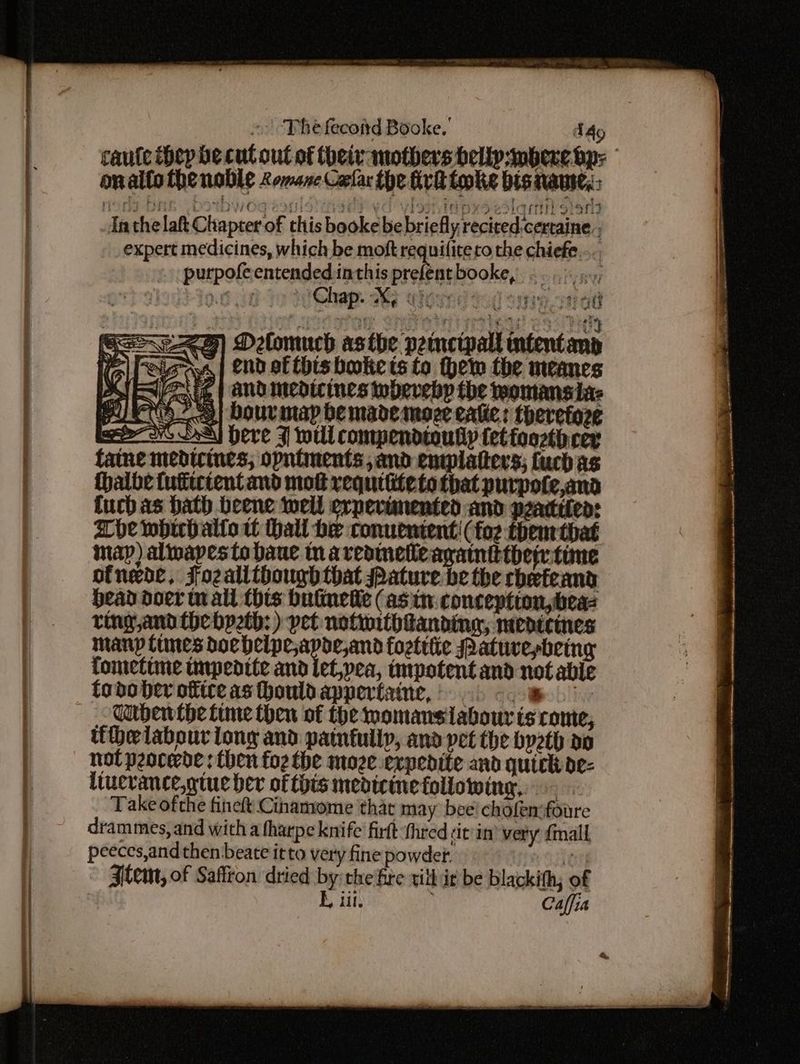 The ſecond Booke. 149
cauſe they be cut out of their mothers belly: where vp-
on alſo the noble Romane Cæſar the firſt tooke his name.
In the laſt Chapter of this booke be briefly recited certaine
expert medicines, which be moſt requiſite to the chiefe
purpoſe entended in this preſent booke,
Chap. X.
Forſomuch as the principall intent and
end of this booke is to ſhew the meanes
and medicines whereby the womans la-
bour may be made more eaſie: therefore
here I will compendiouſly ſet foorth cer
taine medicines, oyntments, and emplaſters, ſuch as
ſhalbe ſufficient and moſt requiſite to that purpoſe, and
ſuch as hath beene well experimented and practiſed:
The which alſo it ſhall bee conuenient (for them that
may) alwayes to haue in a redineſſe againſt their time
of neede. For allthough that Nature be the cheefe and
head doer in all this buſineſſe (as in conception, bea-
ring, and the byrth:) yet notwithſtanding, medicines
many times doe helpe, ayde, and fortifie Nature, being
ſometime impedite and let, yea, impotent and not able
to do her office as ſhould appertaine.
When the time then of the womans labour is come,
if ſhee labour long and painfully, and yet the byrth do
not proceede: then for the more expedite and quick de-
liuerance, giue her of this medicine following.
Take of the fineſt Cinamome that may bee choſen foure
drammes, and with a ſharpe knife firſt ſhred it in very ſmall
peeces, and then beate it to very fine powder.
Item, of Saffron dried by the fire till it be blackiſh, of
L iii. Caſſia